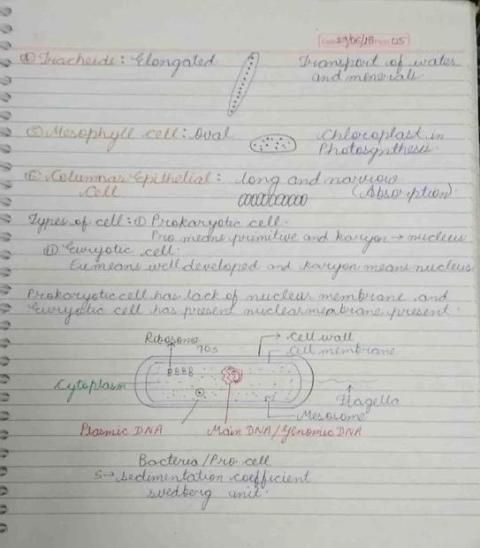 29/05/18 05
Tracheids: Elongated Transport of water
and minerals
Mesophyll cell: oval Chloroplast in
Photosynthesis.
Columnar Epithelial: long and narrow
Cell (Absorption)
Types of cell: ① Prokaryotic cell.
Pro means primitive and karyon → nucleus
② Euryotic cell.
Eu means well developed and karyon means nucleus
Prokaryotic cell has lack of nuclear membrane and
Euryotic cell has present nuclear membrane present.
Ribosome → Cell wall
70s Cell membrane
Cytoplasm
Flagella
Mesosome
Plasmic DNA Main DNA/Genomic DNA
Bacteria/Pro cell
S → sedimentation coefficient
svedberg unit.